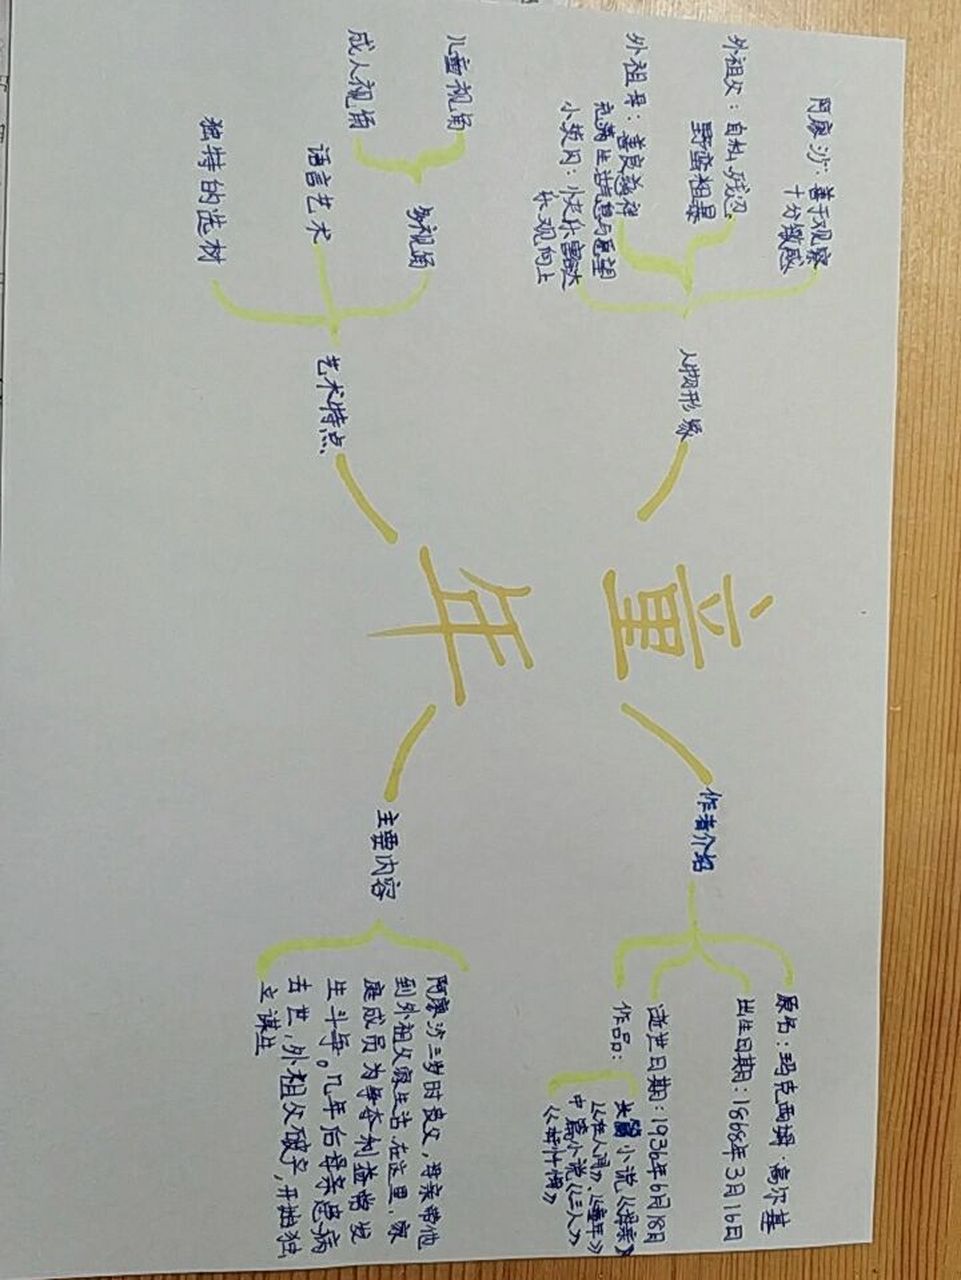 童年
人物形象
阿廖沙：善于观察
十分敏感
外祖父：自私、残忍
野蛮粗暴
外祖母：善良慈祥
充满生活气息与愿望
小茨冈：心灵
乐观向上
作者介绍
原名：玛克西姆·高尔基
出生日期：1868年3月16日
逝世日期：1936年6月18日
作品：
长篇小说《母亲》
《在人间》《童年》
中篇小说《三人》
艺术特点
多视角
儿童视角
成人视角
语言艺术
独特的选材
主要内容
阿廖沙三岁时丧父，母亲带他
到外祖父家生活.在这里，家
庭成员为争夺利益常发
生斗争。几年后母亲患病
去世，外祖父破产，开始独
立谋生